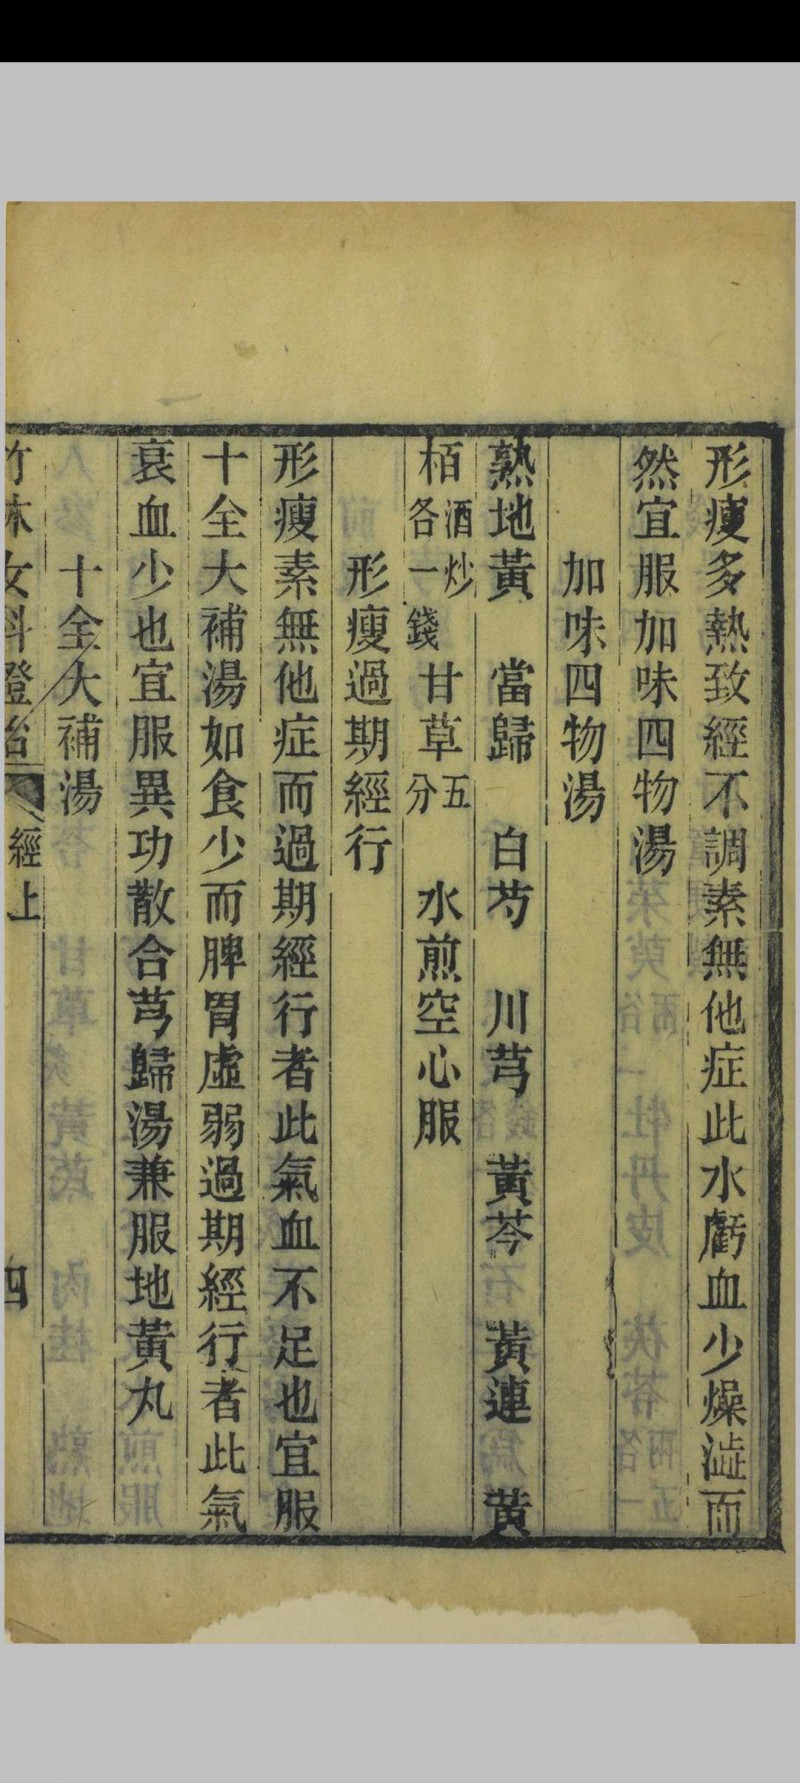 形瘦多熱致經不調素無他症此水虧血少燥澁而
然宜服加味四物湯
加味四物湯
熟地黃　當歸　白芍　川芎　黃芩　黃連　黃
栢酒炒各一錢　甘草五分　水煎空心服
形瘦過期經行
形瘦素無他症而過期經行者此氣血不足也宜服
十全大補湯如食少而脾胃虛弱過期經行者此氣
衰血少也宜服異功散合芎歸湯兼服地黃丸
十全大補湯
竹林女科證治　經上　四